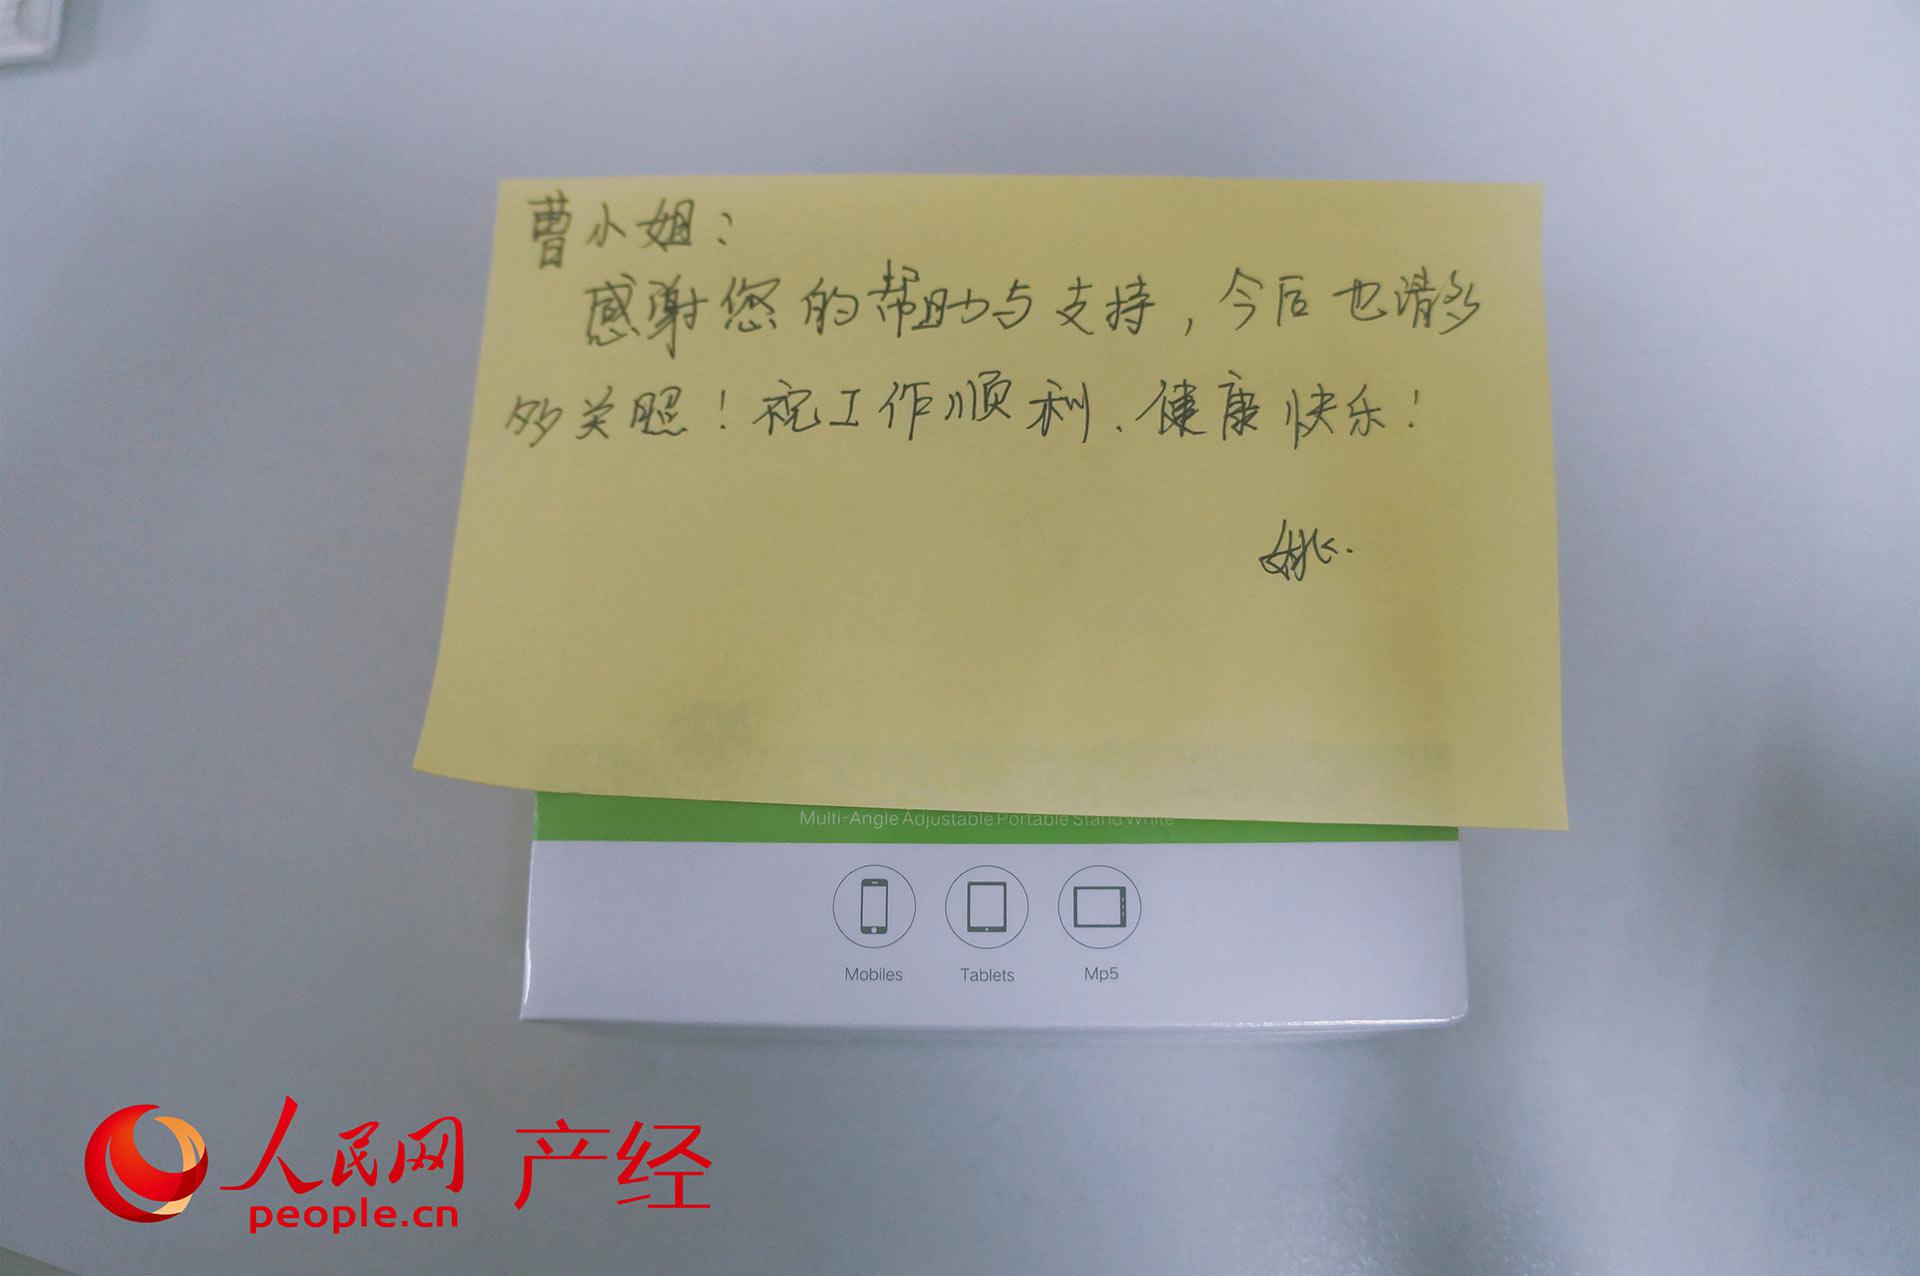 曹小姐：
感谢您的帮助与支持，今后也请多
多关照！祝工作顺利、健康快乐！
姚.
Multi-Angle Adjustable Portable Stand White
Mobiles Tablets Mp5
人民网 产经
people.cn